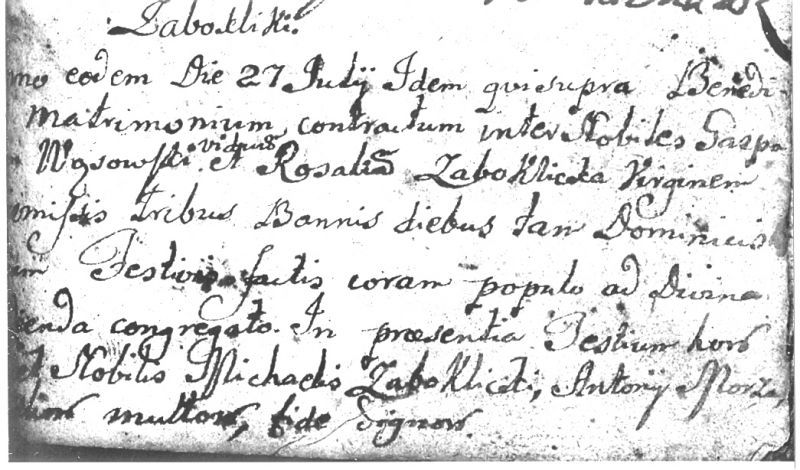 Zabokliki.
eodem Die 27 Julij Idem qui supra Benedi
Matrimonium, contractum inter Nobiles Gaspa
Wąsowski viduus et Rosalia Zaboklicka Virginem
tribus Bannis diebus tam Dominicis
Festivis factis coram populo ad Divina
congregato. In praesentia Testium hor
Nobilis Michaelis Zaboklicki, Antonij
multor, fide dignor.